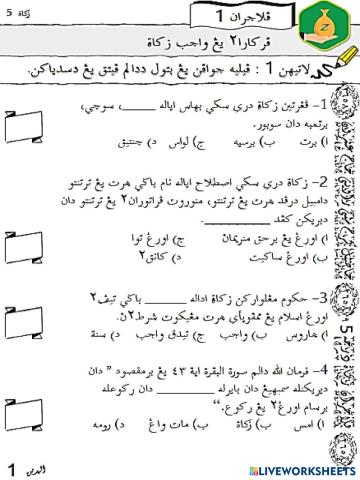 زكاة 5
ڤلاجران 1
ڤركارا٢ يڠ واجب زكاة
لاتيهن 1 : ڤيليه جوابن يڠ بتول ددالم ڤيتق يڠ دسدياكن.
1- ڤڠرتين زكاة دري سڬي بهاس اياله ______، سوچي،
برتمبه دان سوبور.
ا) برت ب) برسيه ج) لواس د) چنتيق
2- زكاة دري سڬي اصطلاح اياله نام باڬي هرت يڠ ترتنتو
دامبيل درڤد هرت يڠ ترتنتو، منوروت ڤراتوران٢ يڠ ترتنتو دان
دبريكن كڤد ____________.
ا) اورڠ يڠ برحق منريمان ج) اورڠ توا
ب) اورڠ ساكيت د) كانق٢
3- حكوم مڠلواركن زكاة اداله ________ باڬي تيڤ٢
اورڠ اسلام يڠ ممڤوڽاءي هرت مڠيكوت شرط٢ن.
ا) هاروس ب) واجب ج) تيدق واجب د) سنة
4- فرمان الله دالم سورة البقرة اية ٤٣ يڠ برمقصود " دان
ديريكنله سمبهيڠ دان بايرله __________ دان ركوعله
برسام اورڠ٢ يڠ ركوع."
ا) امس ب) زكاة ب) مات واڠ د) رومه
الدين 1
LIVEWORKSHEETS